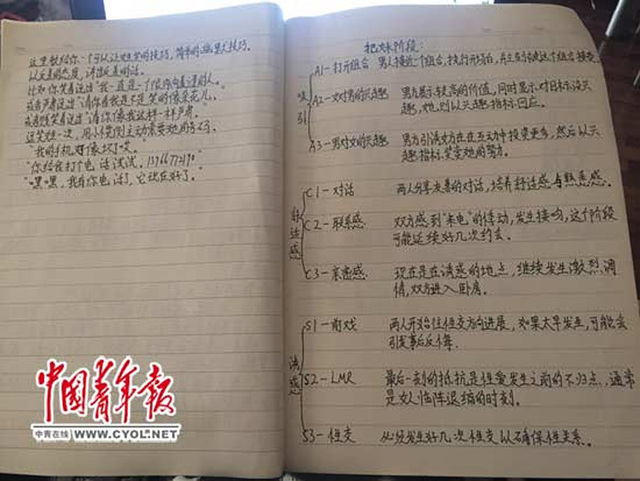 这里教给你一个可以让女生笑的技巧，简单的幽默式技巧。
以反差的态度，讲述反差的话。
比如你笑着说出"我一直是一个很内向羞涩的人。
或者严肃说出"请你看我是不是笑的像朵花儿。
或者傻笑着说出"请你像我这样一样严肃。
逗笑她一次，用小惯例主动索要她的号码。
"我的手机好像坏了哎。
"你给我打个电话试试，
"嘿嘿，我有你电话了，它现在好了。
把妹阶段：
吸引
A1-打开组合 男人接近一个组合，执行开场白，并立刻被这个组合接受
A2-女对男的兴趣 男方展示较高的价值，同时显示对目标没兴
趣，她则以兴趣指标回应。
A3-男对女的兴趣 男方引诱女方在互动中投资更多，然后以兴
趣指标奖赏她的努力。
舒适感
C1-对话 两人分享友善的对话，培养舒适感与熟悉感。
C2-联系感 双方感到"来电"的悸动，发生接吻，这个阶段
可能延续好几次约会。
C3-亲密感 现在是在诱惑的地点，继续发生激烈调
情，双方进入卧房。
诱惑
S1-前戏 两人开始往性交方向进展，如果太早发生，可能会
引发事后反悔.
S2-LMR 最后一刻的抵抗是性爱发生之前的不归点，通常
是女人临阵退缩的时刻。
S3-性交 必须发生好几次性交以确保性关系。
中国青年报
中青在线 WWW.CYOL.NET